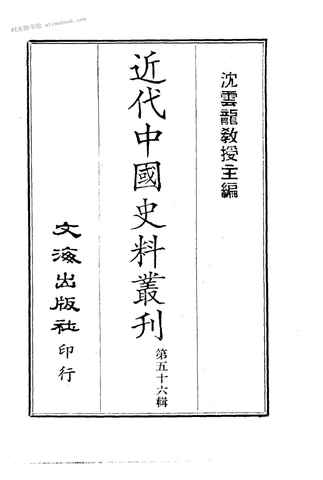 沈雲龍教授主編
近代中國史料叢刊
第五十六輯
文海出版社
印行